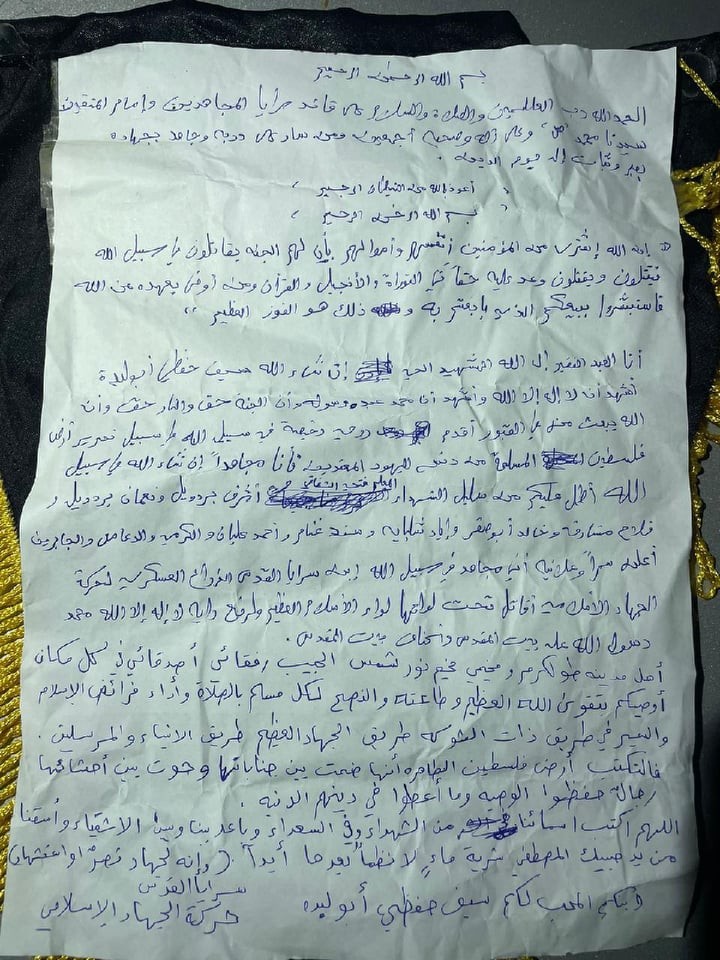 بسم الله الرحمن الرحيم
الحمد لله رب العالمين والصلاة والسلام على قائد سرايا المجاهدين وإمام المتقين
سيدنا محمد "ص" وعلى آله وصحبه أجمعين ومن سار على دربه وجاهد بجهاده
بصبر وثبات إلى يوم الدين .
" أعوذ بالله من الشيطان الرجيم "
" بسم الله الرحمن الرحيم "
" إن الله إشترى من المؤمنين أنفسهم وأموالهم بأن لهم الجنة يقاتلون في سبيل الله
فيقتلون ويقتلون وعد عليه حقاً في التوراة والأنجيل والقرآن ومن أوفى بعهده من الله
فاستبشروا ببيعكم الذي بايعتم به و ذلك هو الفوز العظيم "
أنا العبد الفقير إلى الله الشهيد الحي إن شاء الله سيف حفظي أبولبدة
أشهد أن لا إله إلا الله وأشهد أن محمد عبده ورسوله وأن الجنة حق والنار حق وأن
الله يبعث من في القبور أقدم روحي رخيصة في سبيل الله في سبيل تحرير أرض
فلسطين المسلمة من دنس اليهود المعتدين فأنا مجاهداً إن شاء الله في سبيل
الله أطل عليكم من سلسال الشهداء المعلم فتحي الشقاقي أشرف بردويل ونعمان بردويل و
فلاح مشارقة وخالد أبوصقر وإياد شلباية وسند غنام وأحمد عليان والكرمي والدعامس والجابرين
أعلنه سراً وعلانيه أني مجاهد في سبيل الله إبن سرايا القدس الذراع العسكري لحركة
الجهاد الإسلامي أقاتل تحت لوائها لواء الأسلام العظيم ولرفع راية لا إله إلا الله محمد
رسول الله على بيت المقدس وأكناف بيت المقدس .
أهل مدينه طولكرم ومحبي مخيم نور شمس الحبيب رفقائي أصدقائي في كل مكان
أوصيكم بتقوى الله العظيم وطاعته والنصح لكل مسلم بالصلاة وأداء فرائض الإسلام
والسير في طريق ذات الشوكه طريق الجهاد العظيم طريق الانبياء والمرسلين .
فالتكتب أرض فلسطين الطاهره أنها ضمت بين جناباتها وحوت بين أحشائها
رجالاً حفظوا الوصيه وما أعطوا في دينهم الدنيه .
اللهم اكتب اسمائنا من الشهداء وفي السعداء وباعد بيننا وبين الاشقياء وأسقنا
من يد حبيبك المصطفى شربة ماءٍ لا نظمأ بعدها أبداً (وإنه لجهاد نصرٌ او استشهاد)
سرايا القدس
إبنكم المحب لكم سيف حفظي أبولبده
حركة الجهاد الإسلامي